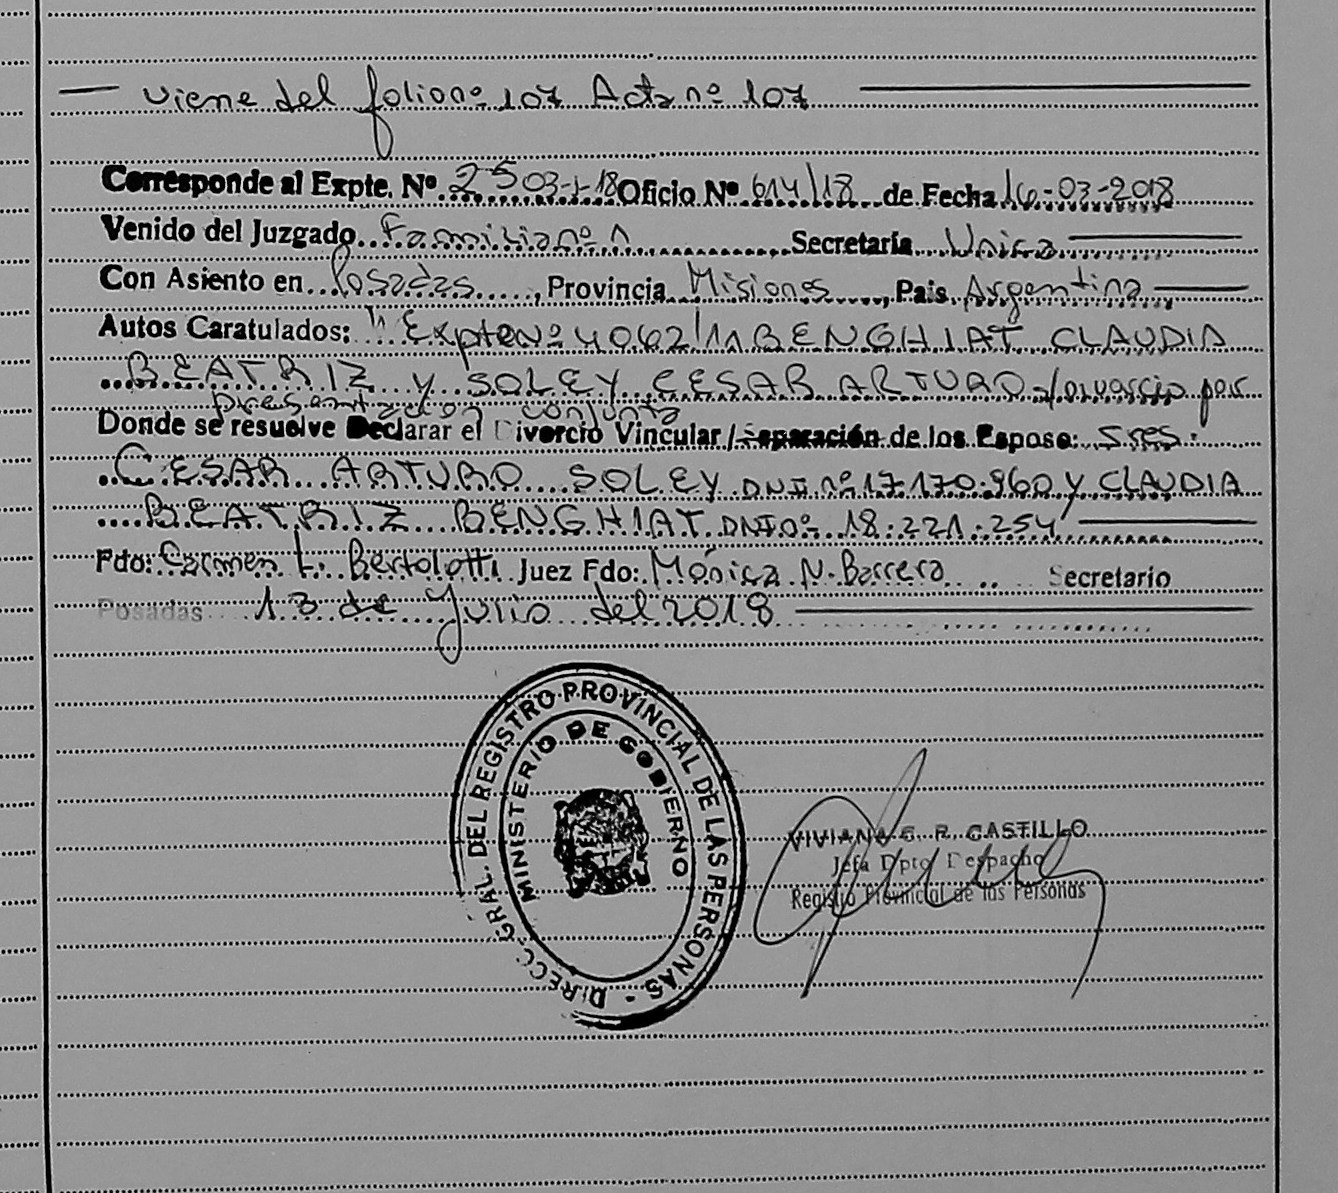 viene del folio nº 107 Acta nº 107
Corresponde al Expte. Nº 2503-J-18 Oficio Nº 614/18 de Fecha 16-03-2018
Venido del Juzgado Familia nº 1 Secretaría Unica
Con Asiento en Posadas, Provincia Misiones, Pais Argentina
Autos Caratulados: "Expte Nº 4062/11 BENGHIAT CLAUDIA
BEATRIZ y SOLEY CESAR ARTURO s/divorcio por
presentación conjunta
Donde se resuelve Declarar el Divorcio Vincular/Separación de los Esposo: Sres:
CESAR ARTURO SOLEY DNI nº 17.170.960 y CLAUDIA
BEATRIZ BENGHIAT DNI nº 18.221.254
Fdo: Carmen L. Bertolotti Juez Fdo: Mónica N. Barrero Secretario
Posadas 13 de Julio del 2018
DIRECC. GRAL. DEL REGISTRO PROVINCIAL DE LAS PERSONAS -
MINISTERIO DE GOBIERNO
VIVIANA G. R. CASTILLO
Jefa Dpto Despacho
Registro Provincial de las Personas